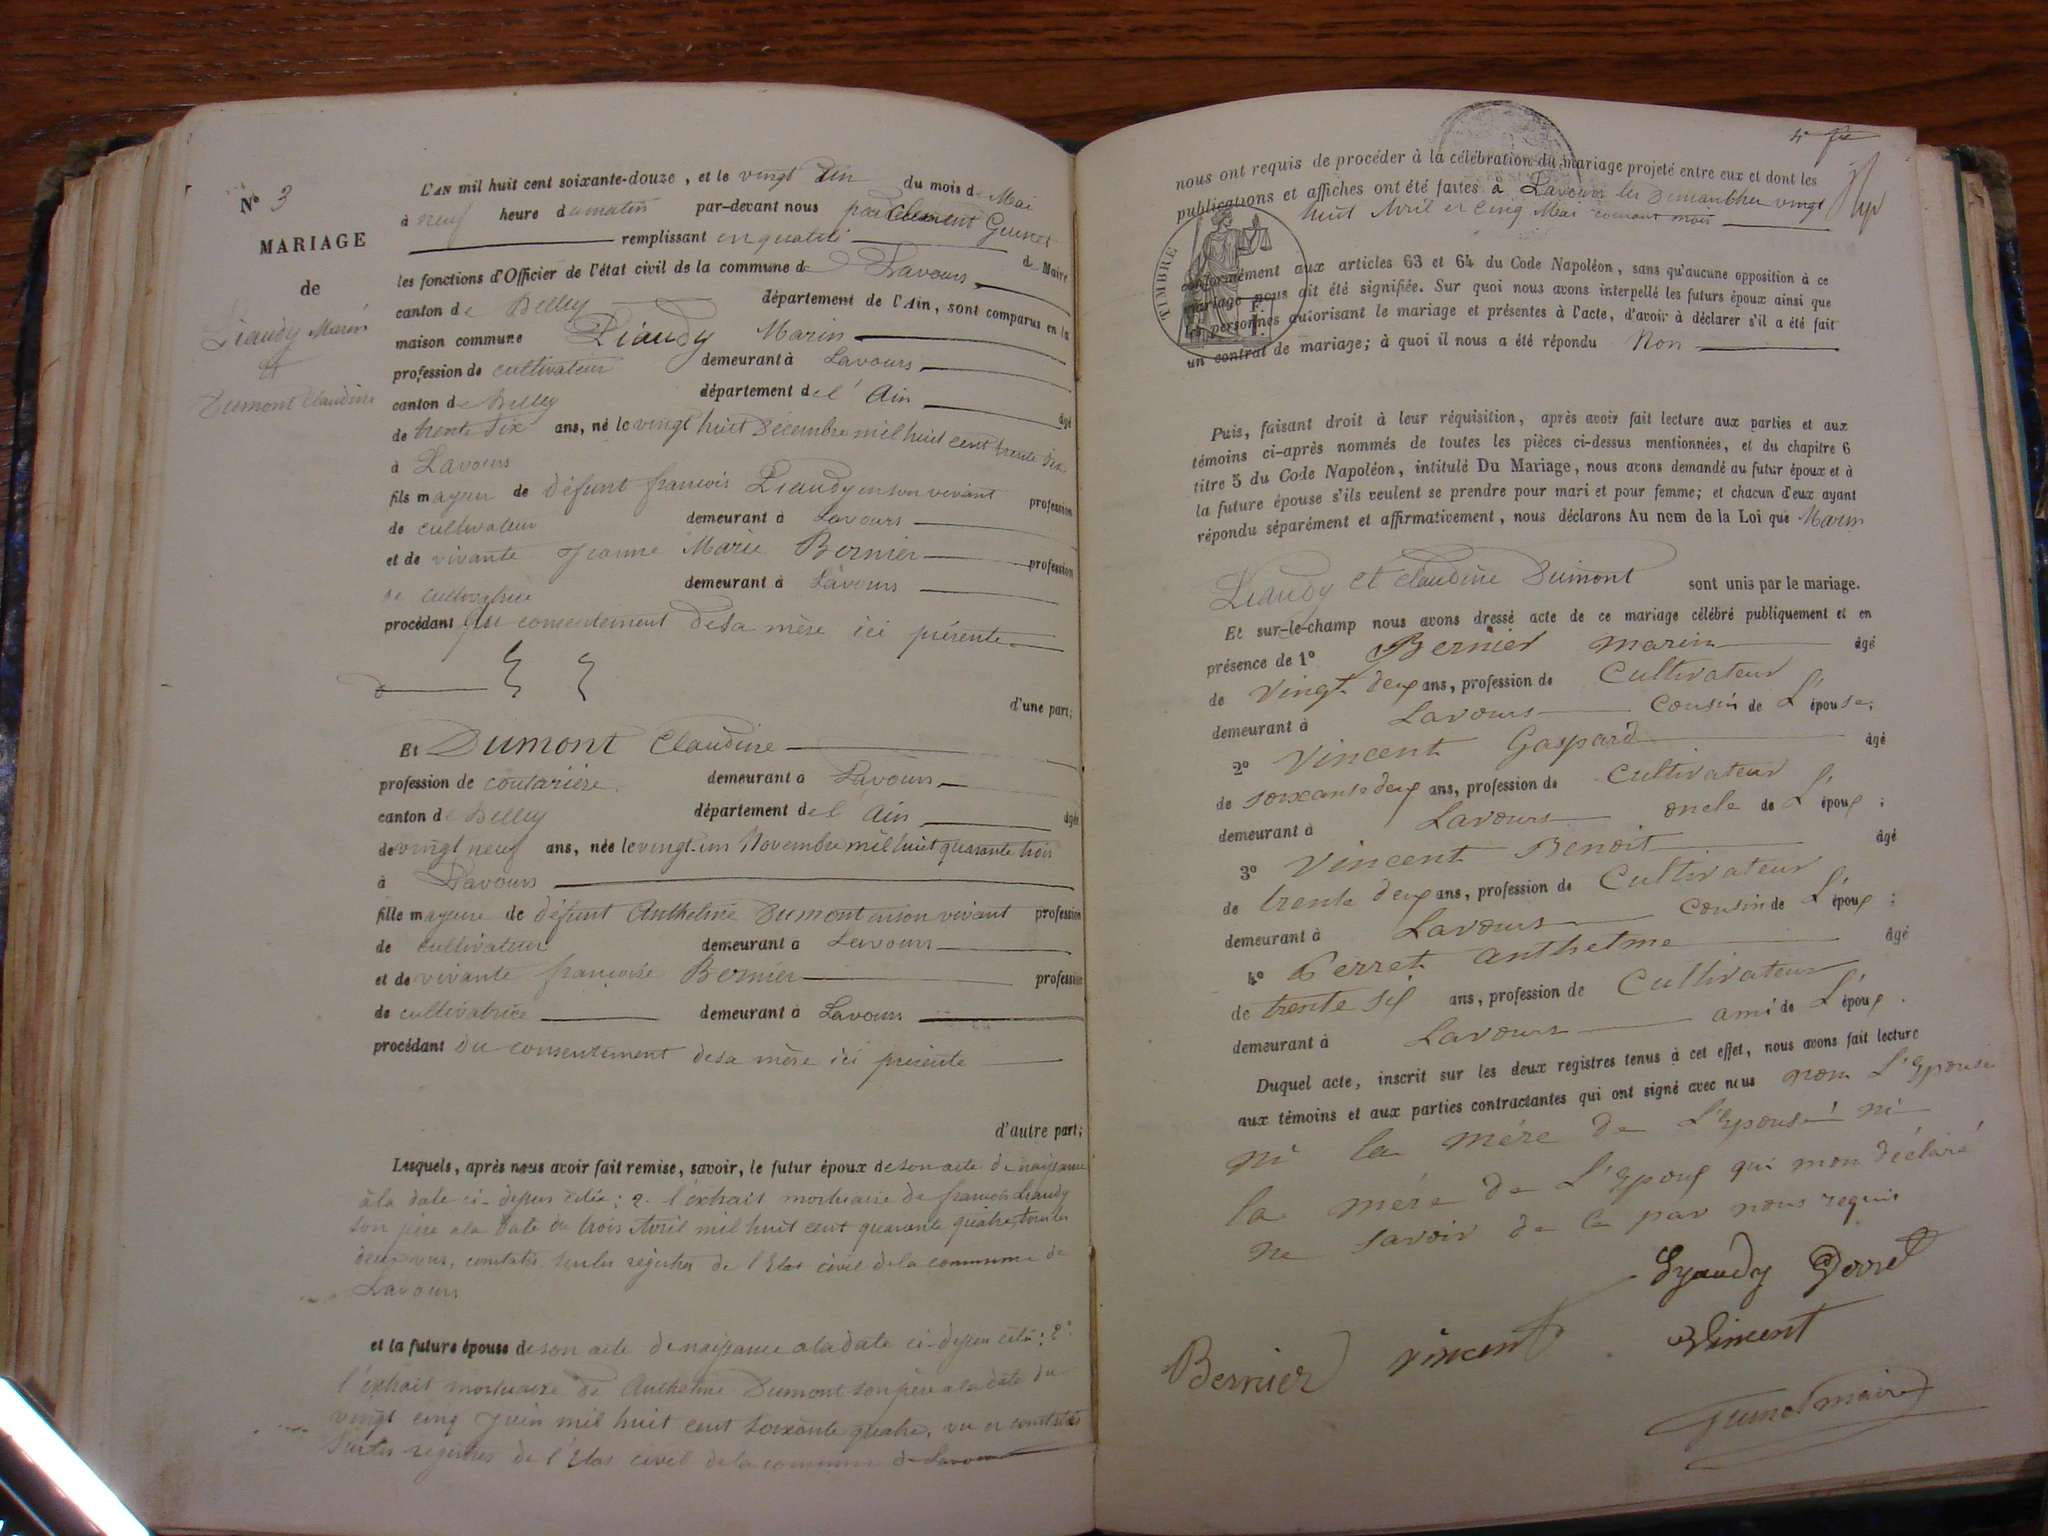 No 3
MARIAGE
de
Liaudy Marin
et
Dumont Claudine
L'AN mil huit cent soixante-douze, et le vingt un du mois de Mai
à neuf heure du matin par-devant nous Clément Guinet
remplissant en qualité de Maire
les fonctions d'Officier de l'état civil de la commune de Lavours
canton de Belley département de l'Ain, sont comparus en la
maison commune Liaudy Marin
profession de cultivateur demeurant à Lavours
canton de Belley département de l'Ain âgé
de trente six ans, né le vingt huit Décembre mil huit cent trente
à Lavours
fils mayeur de défunt françois Liaudy en son vivant profession
de cultivateur demeurant à Lavours
et de vivante Jeanne Marie Bernier profession
de cultivatrice demeurant à Lavours
procédant du consentement de sa mère ici présente
d'une part;
Et Dumont Claudine
profession de couturière demeurant à Lavours
canton de Belley département de l'Ain âgée
de vingt neuf ans, née le vingt-un Novembre mil huit quarante trois
à Lavours
fille mayeure de défunt Anthelme Dumont en son vivant profession
de cultivateur demeurant à Lavours
et de vivante françoise Bernier profession
de cultivatrice demeurant à Lavours
procédant du consentement de sa mère ici présente
d'autre part;
Lesquels, après nous avoir fait remise, savoir, le futur époux de son acte de naissance
à la date ci-dessus citée: 2° l'extrait mortuaire de françois Liaudy
son père a la date du trois Avril mil huit cent quarante quatre, tous les
deux vus, constatés sur les registres de l'Etat civil de la commune de
Lavours
et la future épouse de son acte de naissance a la date ci-dessus citée: 2°
l'extrait mortuaire de Anthelme Dumont son père a la date du
vingt cinq Juin mil huit cent soixante quatre, vu et constatés
sur les registres de l'Etat civil de la commune de Lavours
4e
nous ont requis de procéder à la célébration du mariage projeté entre eux et dont les
publications et affiches ont été faites à Lavours les Dimanches vingt
huit Avril et cinq Mai courant mois
TIMBRE
conformément aux articles 63 et 64 du Code Napoléon, sans qu'aucune opposition à ce
mariage nous ait été signifiée. Sur quoi nous avons interpellé les futurs époux ainsi que
les personnes autorisant le mariage et présentes à l'acte, d'avoir à déclarer s'il a été fait
un contrat de mariage; à quoi il nous a été répondu Non
Puis, faisant droit à leur réquisition, après avoir fait lecture aux parties et aux
témoins ci-après nommés de toutes les pièces ci-dessus mentionnées, et du chapitre 6
titre 5 du Code Napoléon, intitulé Du Mariage, nous avons demandé au futur époux et à
la future épouse s'ils veulent se prendre pour mari et pour femme; et chacun d'eux ayant
répondu séparément et affirmativement, nous déclarons Au nom de la Loi que Marin
Liaudy et Claudine Dumont sont unis par le mariage.
Et sur-le-champ nous avons dressé acte de ce mariage célébré publiquement et en
présence de 1° Bernier marin âgé
de vingt deux ans, profession de Cultivateur
demeurant à Lavours cousin de L'épouse;
2° Vincent Gaspard âgé
de soixante deux ans, profession de Cultivateur
demeurant à Lavours oncle de L'époux;
3° Vincent Benoit âgé
de trente deux ans, profession de Cultivateur
demeurant à Lavours cousin de L'époux;
4° Perret anthelme âgé
de trente six ans, profession de Cultivateur
demeurant à Lavours ami de L'époux.
Duquel acte, inscrit sur les deux registres tenus à cet effet, nous avons fait lecture
aux témoins et aux parties contractantes qui ont signé avec nous non L'Epouse
ni la mère de L'Epouse ni
la mère de L'Epoux qui mon déclaré
ne savoir de ce par nous requis
Lyaudy Perret
Bernier vincent Vincent
Guinet maire